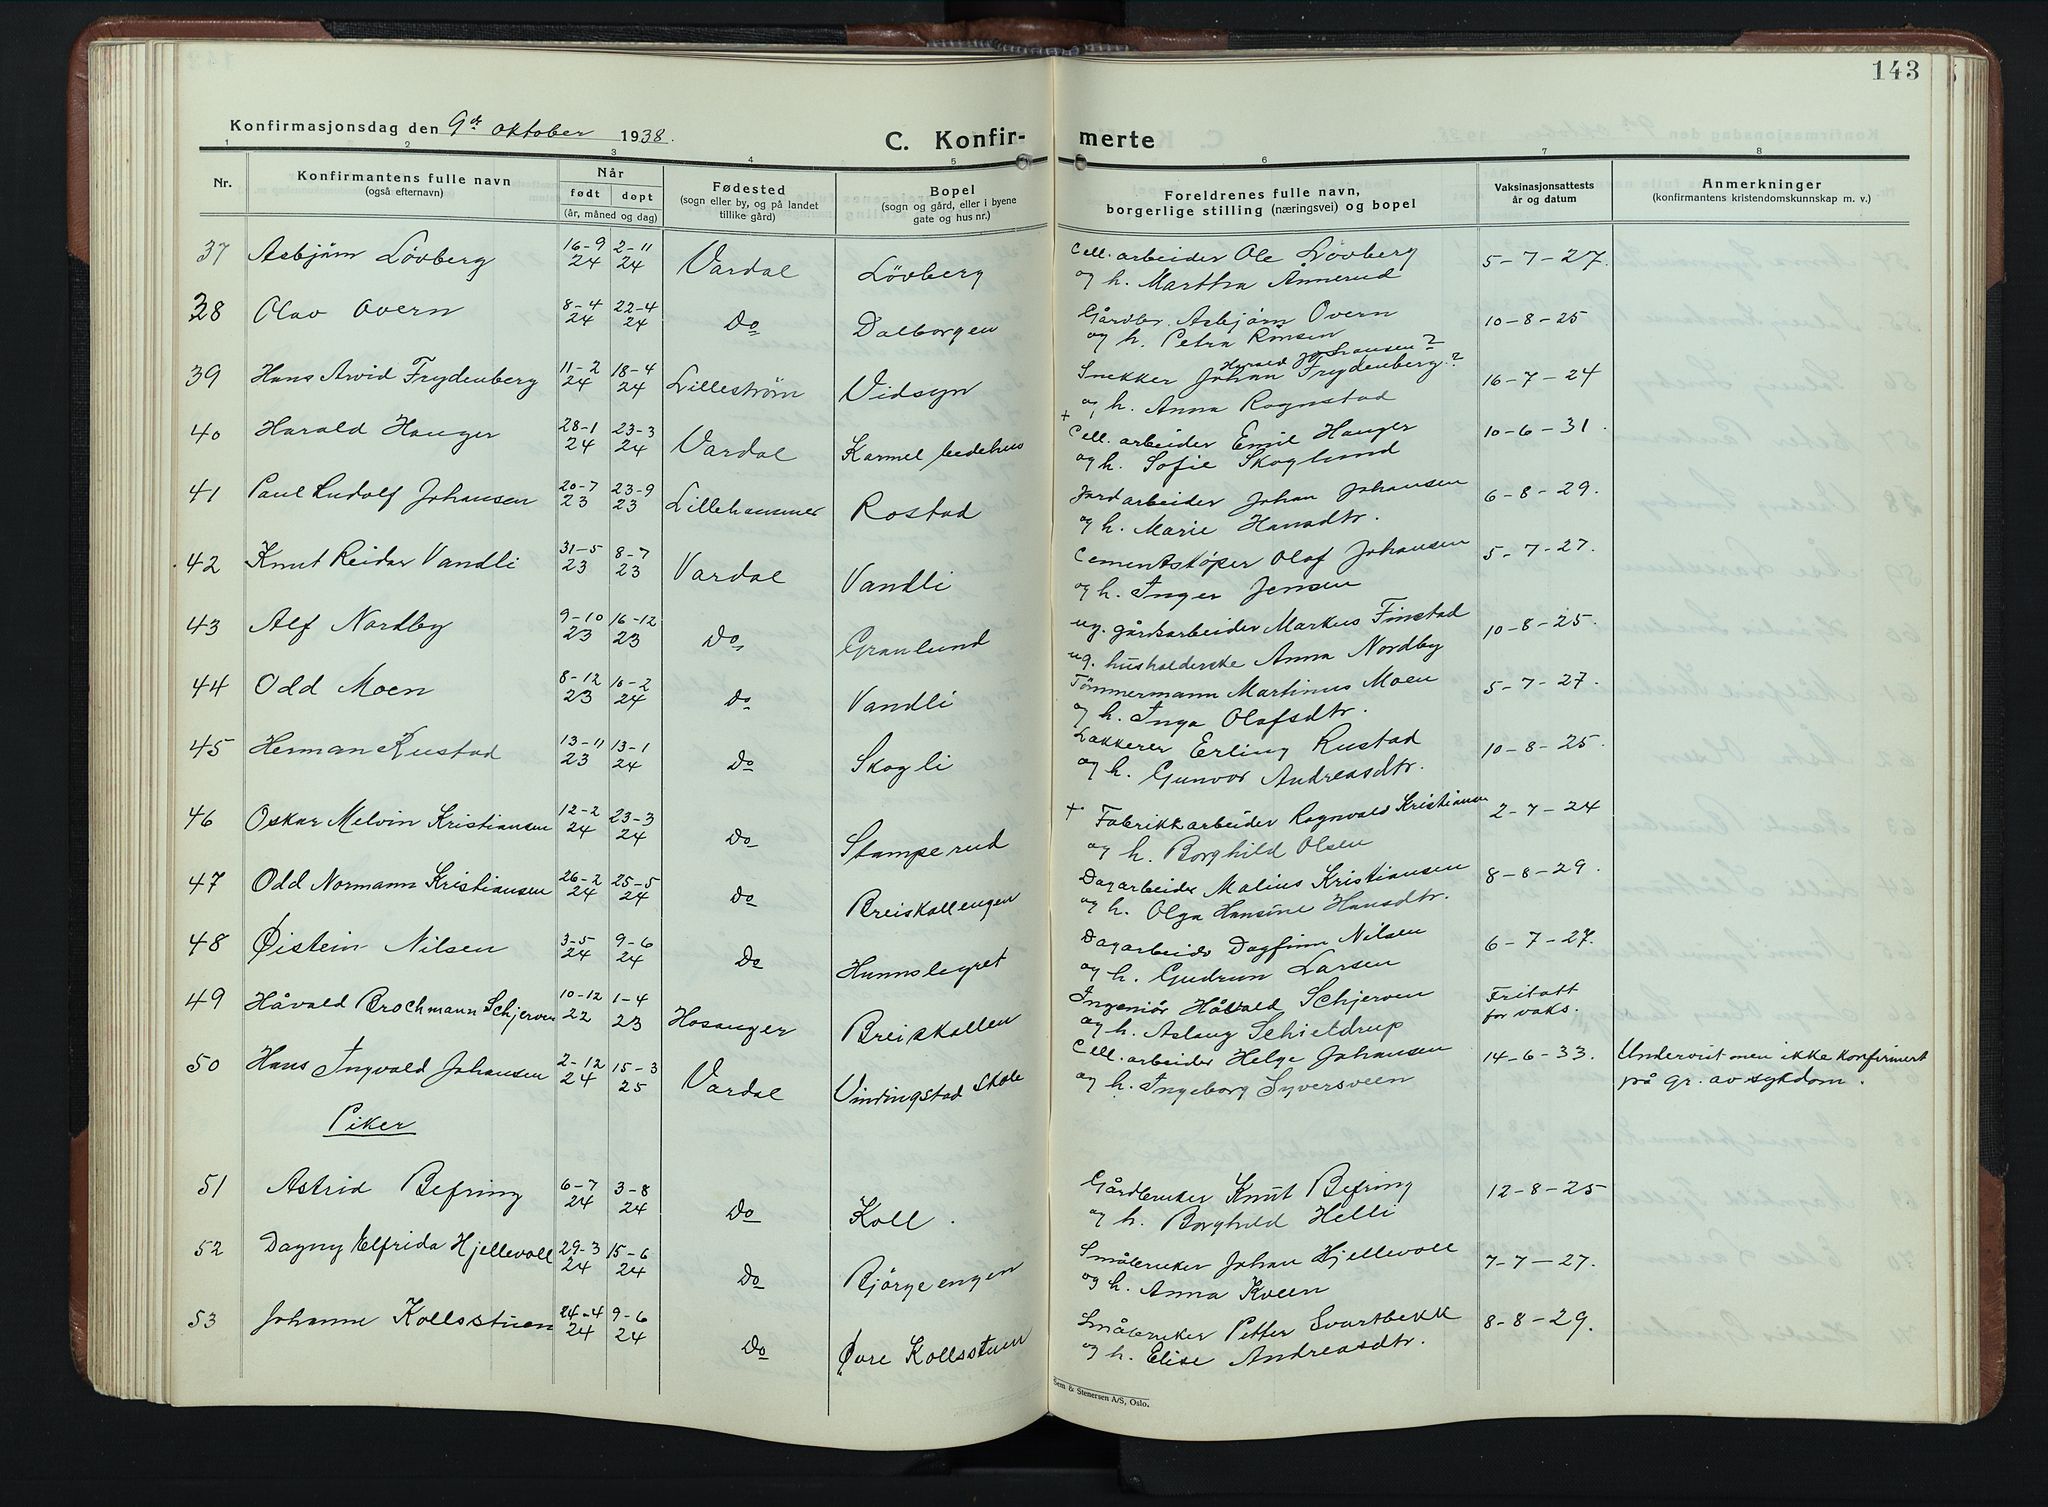 143
Konfirmasjonsdag den 9de oktober 1938.
C. Konfir- merte
1 2 3 4 5 6 7 8
Nr. | Konfirmantens fulle navn (også efternavn) | Når født døpt (år, måned og dag) | Fødested (sogn eller by, og på landet tillike gård) | Bopel (sogn og gård, eller i byene gate og hus nr.) | Foreldrenes fulle navn, borgerlige stilling (næringsvei) og bopel | Vaksinasjonsattests år og datum | Anmerkninger (konfirmantens kristendomskunnskap m. v.)
37 Asbjørn Lövberg 16-9 24 2-11 24 Vardal Lövberg Cell. arbeider Ole Lövberg og h. Marthra Ånnerud 5-7-27.
38 Olav Overn 8-4 24 22-4 24 Do Dalborgen Gårdbr. Asbjørn Overn og h. Petra Rönsen 10-8-25
39 Hans Arvid Frydenberg 11-2 24 18-4 24 Lilleström Vidsyn Snekker Johan Frydenberg? Harald Johansen? og h. Anna Rognstad 16-7-24
40 Harald Hauger 28-1 24 23-3 24 Vardal Karmel bedehus + Cell. arbeider Emil Hauger og h. Sofie Skoglund 10-6-31.
41 Paul Rudolf Johansen 20-7 23 23-9 23 Lillehammer Rostad Jordarbeider Johan Johansen og h. Marie Hansdtr. 6-8-29.
42 Knut Reidar Vandli 31-5 23 8-7 23 Vardal Vandli Cementstøper Olaf Johansen og h. Inger Jensen 5-7-27.
43 Alf Nordby 9-10 23 16-12 23 Do Granlund ug. gårdsarbeider Markus Finstad ug. husholderske Anna Nordby 10-8-25.
44 Odd Moen 8-12 23 10-2 24 Do Vandli Tömmermann Martinus Moen og h. Inga Olafsdtr. 5-7-27.
45 Herman Rustad 13-11 23 13-1 24 Do Skogli Lakkerer Erling Rustad og h. Gunvor Andreasdtr. 10-8-25.
46 Oskar Melvin Kristiansen 12-2 24 23-3 24 Do Stamperud + Fabrikkarbeider Ragnvald Kristiansen og h. Borghild Olsen 2-7-24
47 Odd Normann Kristiansen 26-2 24 25-5 24 Do Breiskallengen Dagarbeider Malius Kristiansen og h. Olga Hansine Hansdtr. 8-8-29.
48 Øistein Nilsen 3-5 24 9-6 24 Do Hunnslegret Dagarbeider Dagfinn Nilsen og h. Gudrun Larsen 6-7-27.
49 Håvald Brochmann Schjerven 10-12 22 1-4 23 Hosanger Breiskallen Ingeniör Håvald Schjerven og h. Aslaug Schieldrup Fritatt for vaks.
50 Hans Ingvald Johansen 2-12 24 15-3 25 Vardal Vindingstad Skole Cell. arbeider Helge Johansen og h. Ingeborg Syversveen 14-6-33. Undervist men ikke konfirmert på gr. av sykdom.
Piker
51 Astrid Befring 6-7 24 3-8 24 Do Koll. Gårdbruker Knut Befring og h. Borghild Helli 12-8-25
52 Dagny Elfrida Hjellevoll 29-3 24 15-6 24 Do Bjørgeengen Småbruker Johan Hjellevoll og h. Anna Kveen 7-7-27.
53 Johanne Kollsstuen 24-4 24 9-6 24 Do Øvre Kollsstuen Småbruker Petter Svartbekk og h. Elise Andreasdtr. 8-8-29.
Sem & Stenersen A/S, Oslo.